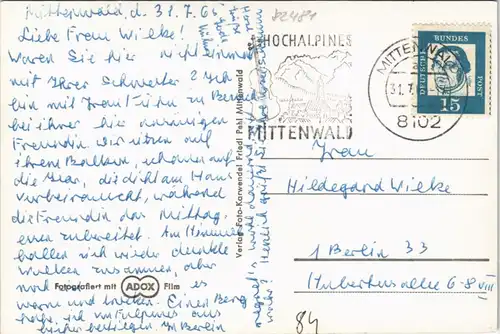 Mittenwald, d. 31.7.65
Liebe Frau Wilke!
Waren Sie hier nicht einmal
mit Ihrer Schwester? Ich
bin mit Frau
bei ihrer hier
Freundin. Wir sitzen auf
ihrem Balkon, schauen auf
die Isar, die dicht am Haus
vorbeirauscht, während
die Freundin das Mittag-
essen zubereitet. Am Himmel
ballen sich wieder dunkle
Wolken zusammen, aber
noch ist es
warm und trocken. Einen Berg
habe ich von hier aus
bisher bestiegen. In Berlin
82481
Verlag Foto-Karwendel Friedl Pehl Mittenwald
Fotografiert mit ADOX Film
HOCHALPINES
MITTENWALD
MITTENWALD
31.7.
8102
DEUTSCHE BUNDESPOST
15
Frau
Hildegard Wilke
1 Berlin 33
Hubertusallee 6-8 VIII
84